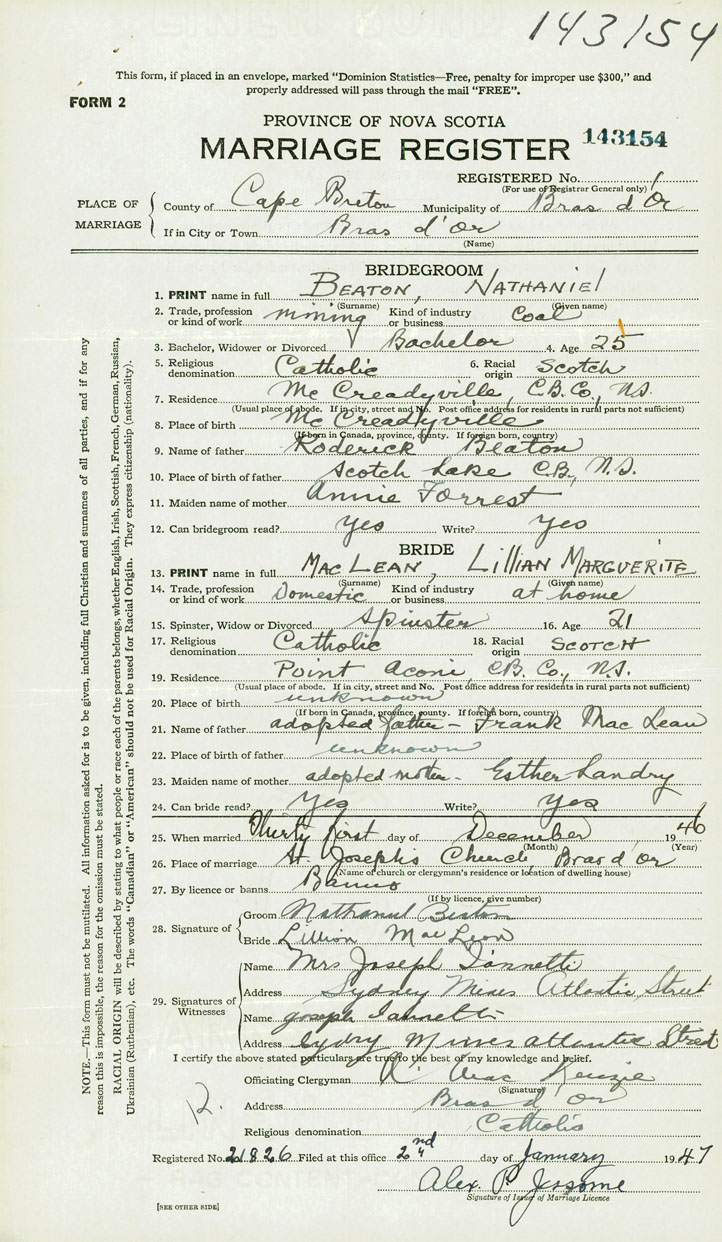 143154
This form, if placed in an envelope, marked "Dominion Statistics—Free, penalty for improper use $300," and
properly addressed will pass through the mail "FREE".
FORM 2
PROVINCE OF NOVA SCOTIA
MARRIAGE REGISTER 143154
REGISTERED No.
(For use of Registrar General only)
PLACE OF MARRIAGE
County of Cape Breton Municipality of Bras d'Or
If in City or Town Bras d'Or
(Name)
BRIDEGROOM
1. PRINT name in full BEATON, NATHANIEl
(Surname) (Given name)
2. Trade, profession or kind of work mining Kind of industry or business Coal
3. Bachelor, Widower or Divorced Bachelor 4. Age 25
5. Religious denomination Catholic 6. Racial origin Scotch
7. Residence Mc Creadyville, C.B. Co., N.S.
(Usual place of abode. If in city, street and No. Post office address for residents in rural parts not sufficient)
8. Place of birth Mc Creadyville
(If born in Canada, province, county. If foreign born, country)
9. Name of father Roderick Beaton
10. Place of birth of father Scotch Lake C.B., N.S.
11. Maiden name of mother Annie Forrest
12. Can bridegroom read? yes Write? yes
BRIDE
13. PRINT name in full MAC LEAN, LILLIAN MARGUERITE
(Surname) (Given name)
14. Trade, profession or kind of work Domestic Kind of industry or business at home
15. Spinster, Widow or Divorced Spinster 16. Age 21
17. Religious denomination Catholic 18. Racial origin SCOTCH
19. Residence Point Aconi, C.B. Co., N.S.
(Usual place of abode. If in city, street and No. Post office address for residents in rural parts not sufficient)
20. Place of birth unknown
(If born in Canada, province, county. If foreign born, country)
21. Name of father adopted father - Frank Mac Lean
22. Place of birth of father unknown
23. Maiden name of mother adopted mother - Esther Landry
24. Can bride read? Yes Write? Yes
25. When married Thirty first day of December 1946
(Month) (Year)
26. Place of marriage St. Joseph's Church, Bras d'or
(Name of church or clergyman's residence or location of dwelling house)
27. By licence or banns Banns
(If by licence, give number)
28. Signature of
Groom Nathanul Beaton
Bride Lillian MacLean
29. Signatures of Witnesses
Name Mrs Joseph Iannetti
Address Sydney Mines Atlantic Street
Name joseph Iannetti
Address Sydny Mines atlantic Street
I certify the above stated particulars are true to the best of my knowledge and belief.
Officiating Clergyman R. Mac Kenzie
(Signature)
12.
Address Bras d'Or
Religious denomination Catholic
Registered No. 21826 Filed at this office 2nd day of January 1947
Alex. P. Jessome
Signature of Issuer of Marriage Licence
[SEE OTHER SIDE]
NOTE.—This form must not be mutilated. All information asked for is to be given, including full Christian and surnames of all parties, and if for any
reason this is impossible, the reason for the omission must be stated.
RACIAL ORIGIN will be described by stating to what people or race each of the parents belongs, whether English, Irish, Scottish, French, German, Russian,
Ukrainian (Ruthenian), etc. The words "Canadian" or "American" should not be used for Racial Origin. They express citizenship (nationality).